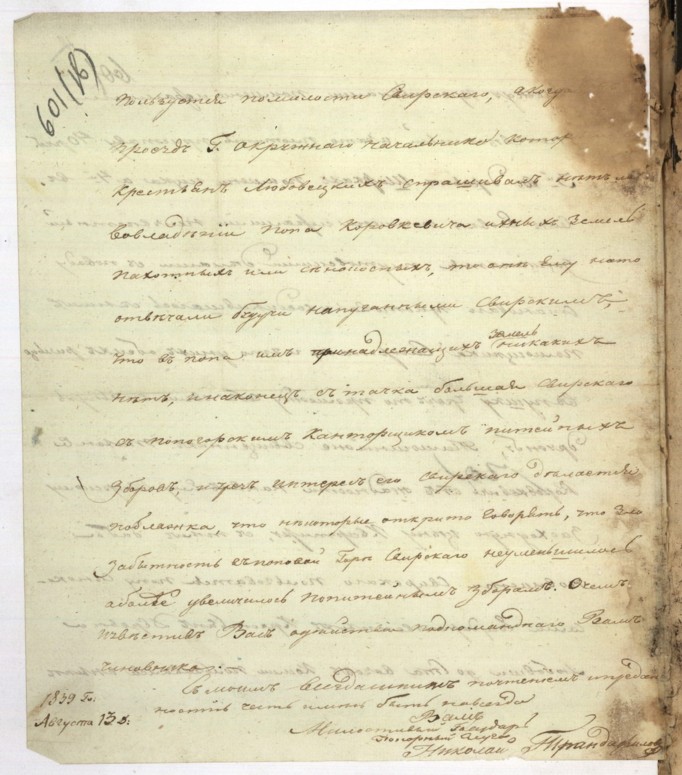 601 (16)
пользуется помилости Свирскаго, акогда
проездъ Г. Окружнаго Начальника котор
крестьянъ Людовецкихъ спрашивалъ нѣтъ ли
вовладѣнiи попа Коровкевича ихныхъ Земель
пахотныхъ или сѣнокосныхъ, то онѣ ему нато
отвѣчали будучи напуганными Свирскимъ,
что въ попа имъ принадлежащихъ земель никакихъ
нѣтъ, инаконецъ стачка большая Свирскаго
съ попогорскимъ Канторщикомъ питейныхъ
Зборовъ, и чрезъ интересъ его Свирскаго делается
поблажка что нѣкоторые открыто говорятъ, что
забытность въ поповой Горѣ Свирскаго неуменьшилось
аболѣе увеличилось попитейнымъ зборамъ. Очемъ
извѣстивъ Васъ одѣйствiи подкоманднаго Вамъ
чиновника.
Съ моимъ всегдашнимъ почтенiемъ ипредан
ностiю честь имѣю быть навсегда
Вамъ
Милостивый Государь
покорный слуга
Николай
1839 Г.
Августа 13 д.